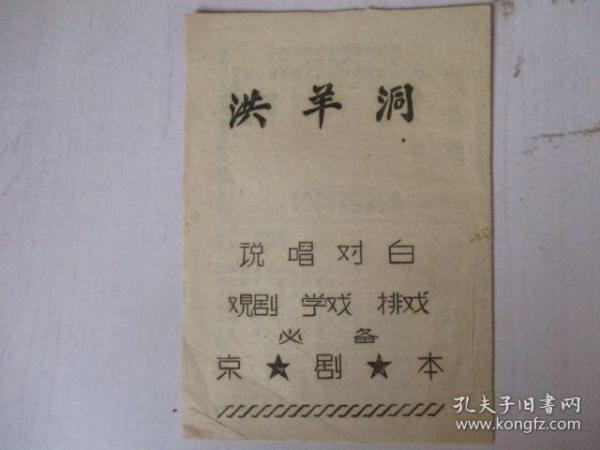 洪羊洞
说唱对白
观剧 学戏 排戏
必备
京★剧★本
孔夫子旧书网
www.kongfz.com